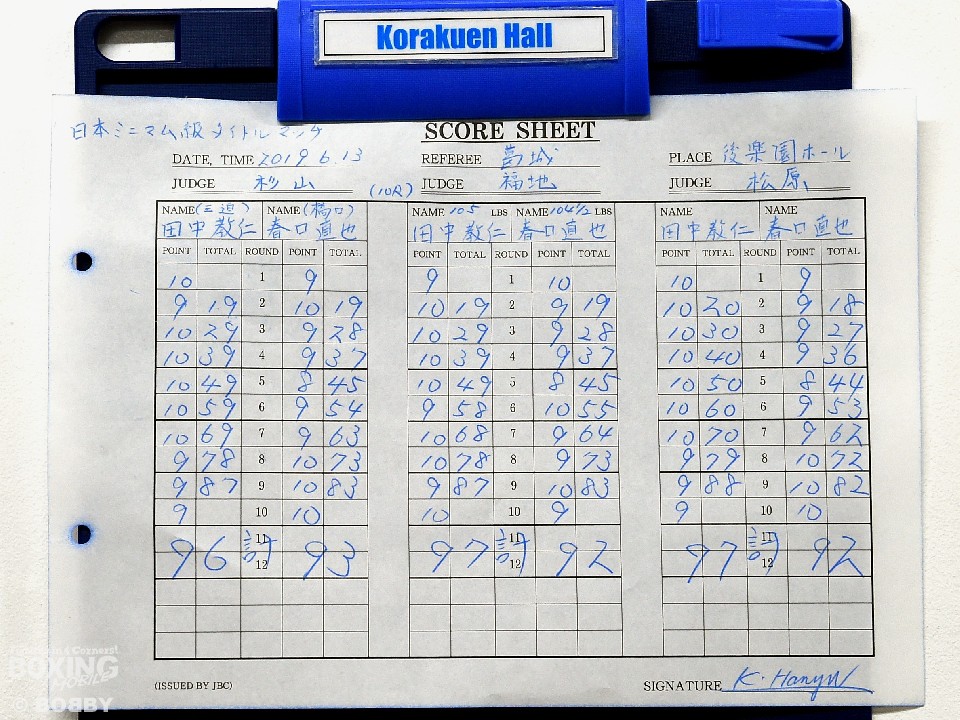 Korakuen Hall
日本ミニマム級タイトルマッチ
SCORE SHEET
DATE, TIME 2019 6.13 REFEREE 葛城 PLACE 後楽園ホール
JUDGE 杉山 (10R) JUDGE 福地 JUDGE 松原
NAME (三迫) NAME (橋口) NAME 105 LBS NAME 104 1/2 LBS NAME NAME
田中教仁 春口直也 田中教仁 春口直也 田中教仁 春口直也
POINT TOTAL ROUND POINT TOTAL POINT TOTAL ROUND POINT TOTAL POINT TOTAL ROUND POINT TOTAL
10 1 9 9 1 10 10 1 9
9 19 2 10 19 10 19 2 9 19 10 20 2 9 18
10 29 3 9 28 10 29 3 9 28 10 30 3 9 27
10 39 4 9 37 10 39 4 9 37 10 40 4 9 36
10 49 5 8 45 10 49 5 8 45 10 50 5 8 44
10 59 6 9 54 9 58 6 10 55 10 60 6 9 53
10 69 7 9 63 10 68 7 9 64 10 70 7 9 62
9 78 8 10 73 10 78 8 9 73 9 79 8 10 72
9 87 9 10 83 9 87 9 10 83 9 88 9 10 82
9 10 10 10 10 9 9 10 10
11 11 11
96 計 93 97 計 92 97 計 92
12 12 12
(ISSUED BY JBC) SIGNATURE
BOXING
MOBILE
© BOBBY